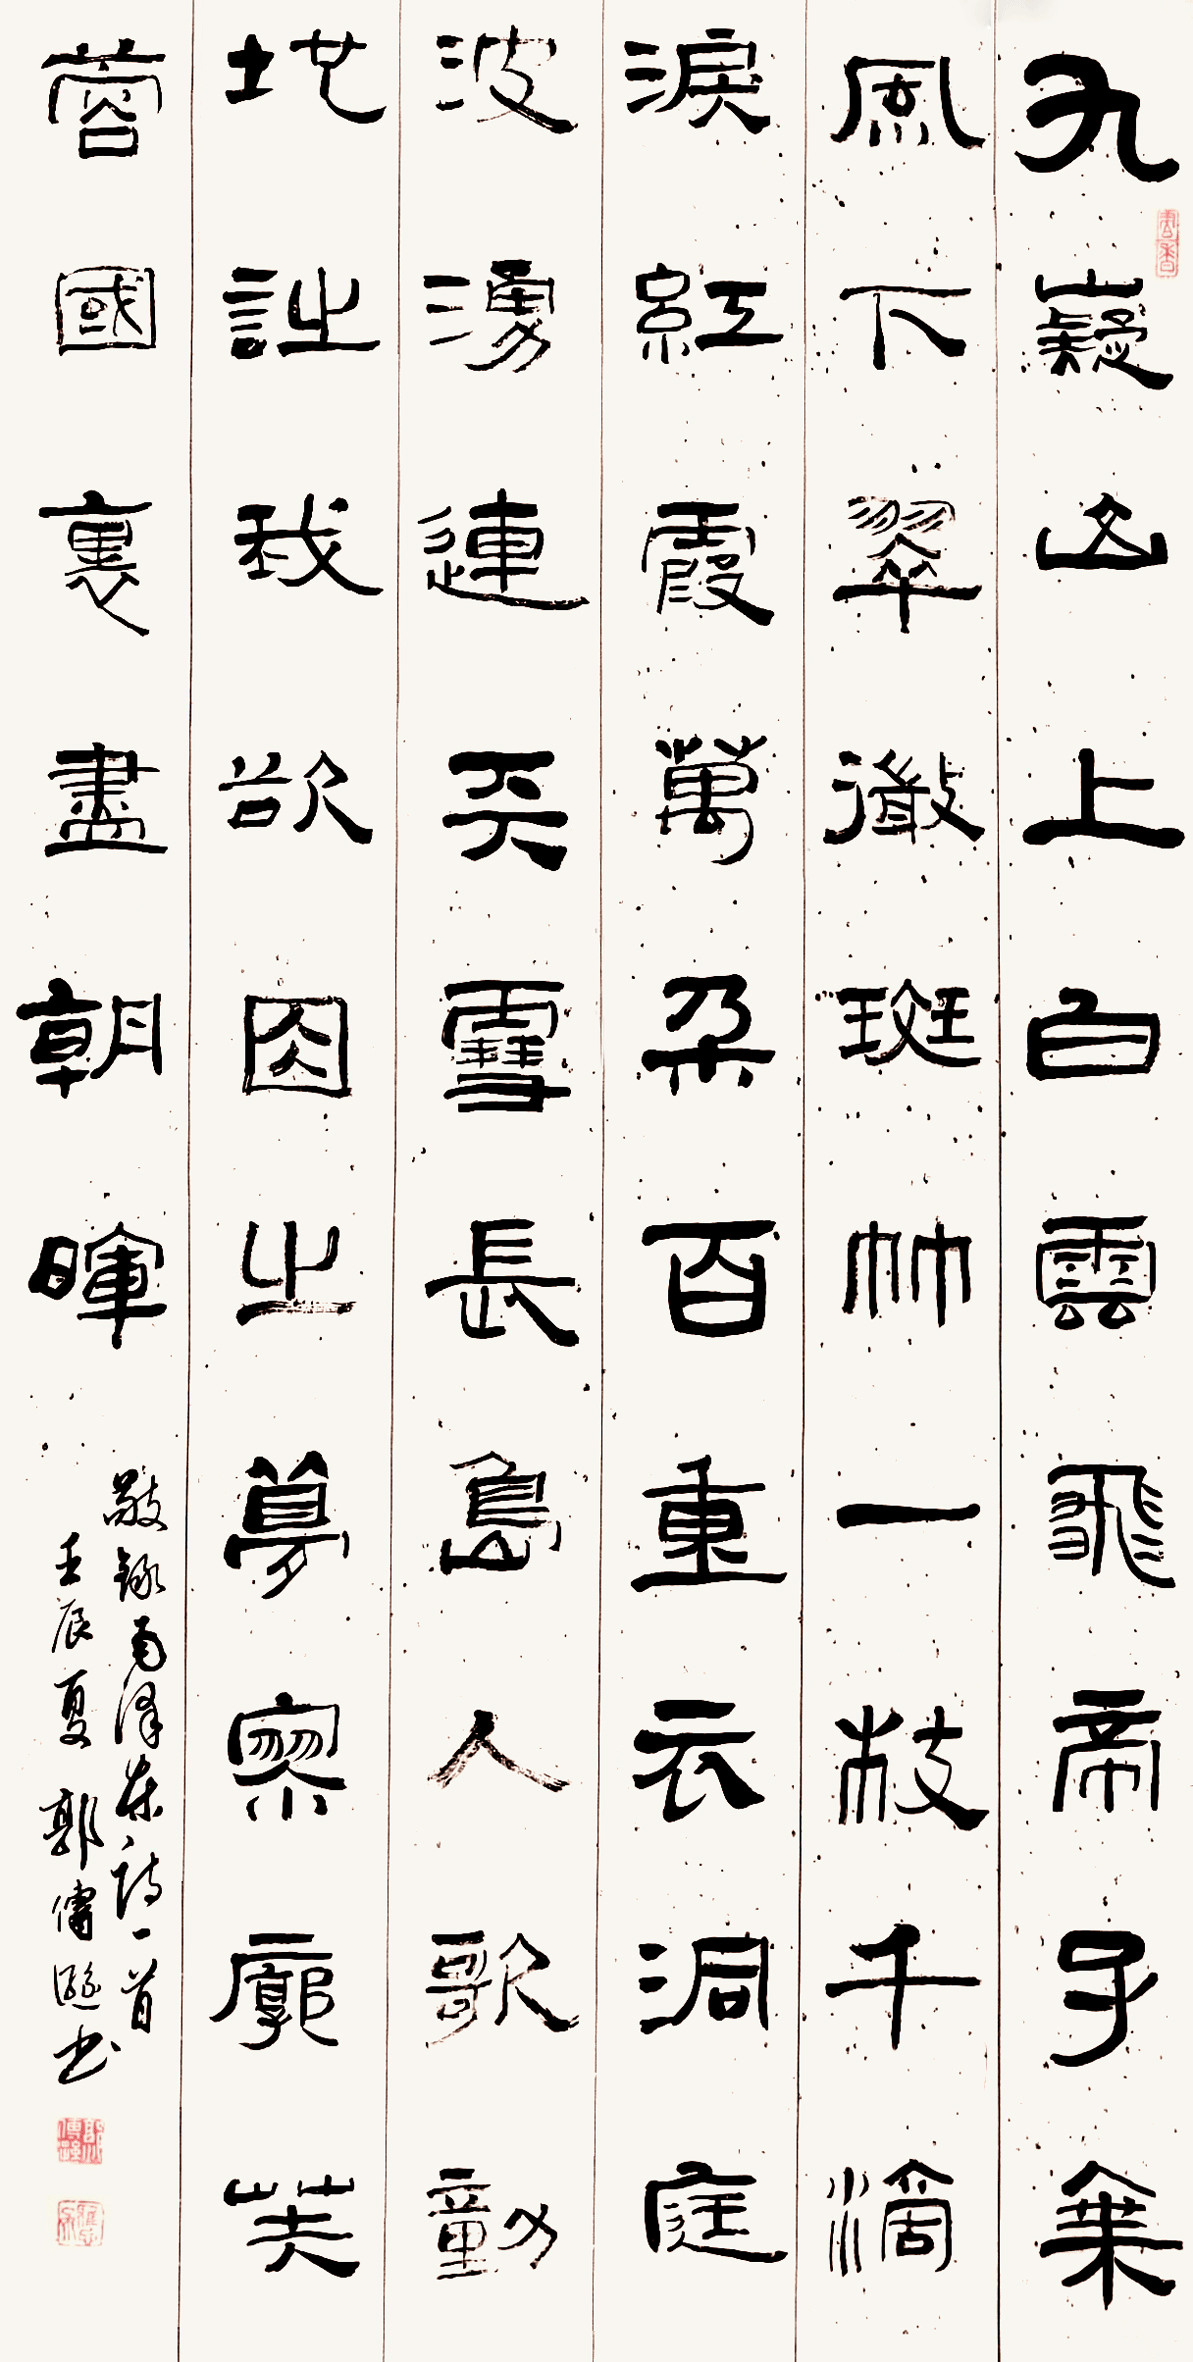 九嶷山上白雲飛帝子乘
風下翠微斑竹一枝千滴
淚紅霞萬朵百重衣洞庭
波湧連天雪長島人歌動
地詩我欲因之夢寥廓芙
蓉國裏盡朝暉
敬錄毛澤東詩一首
壬辰夏 郭 书